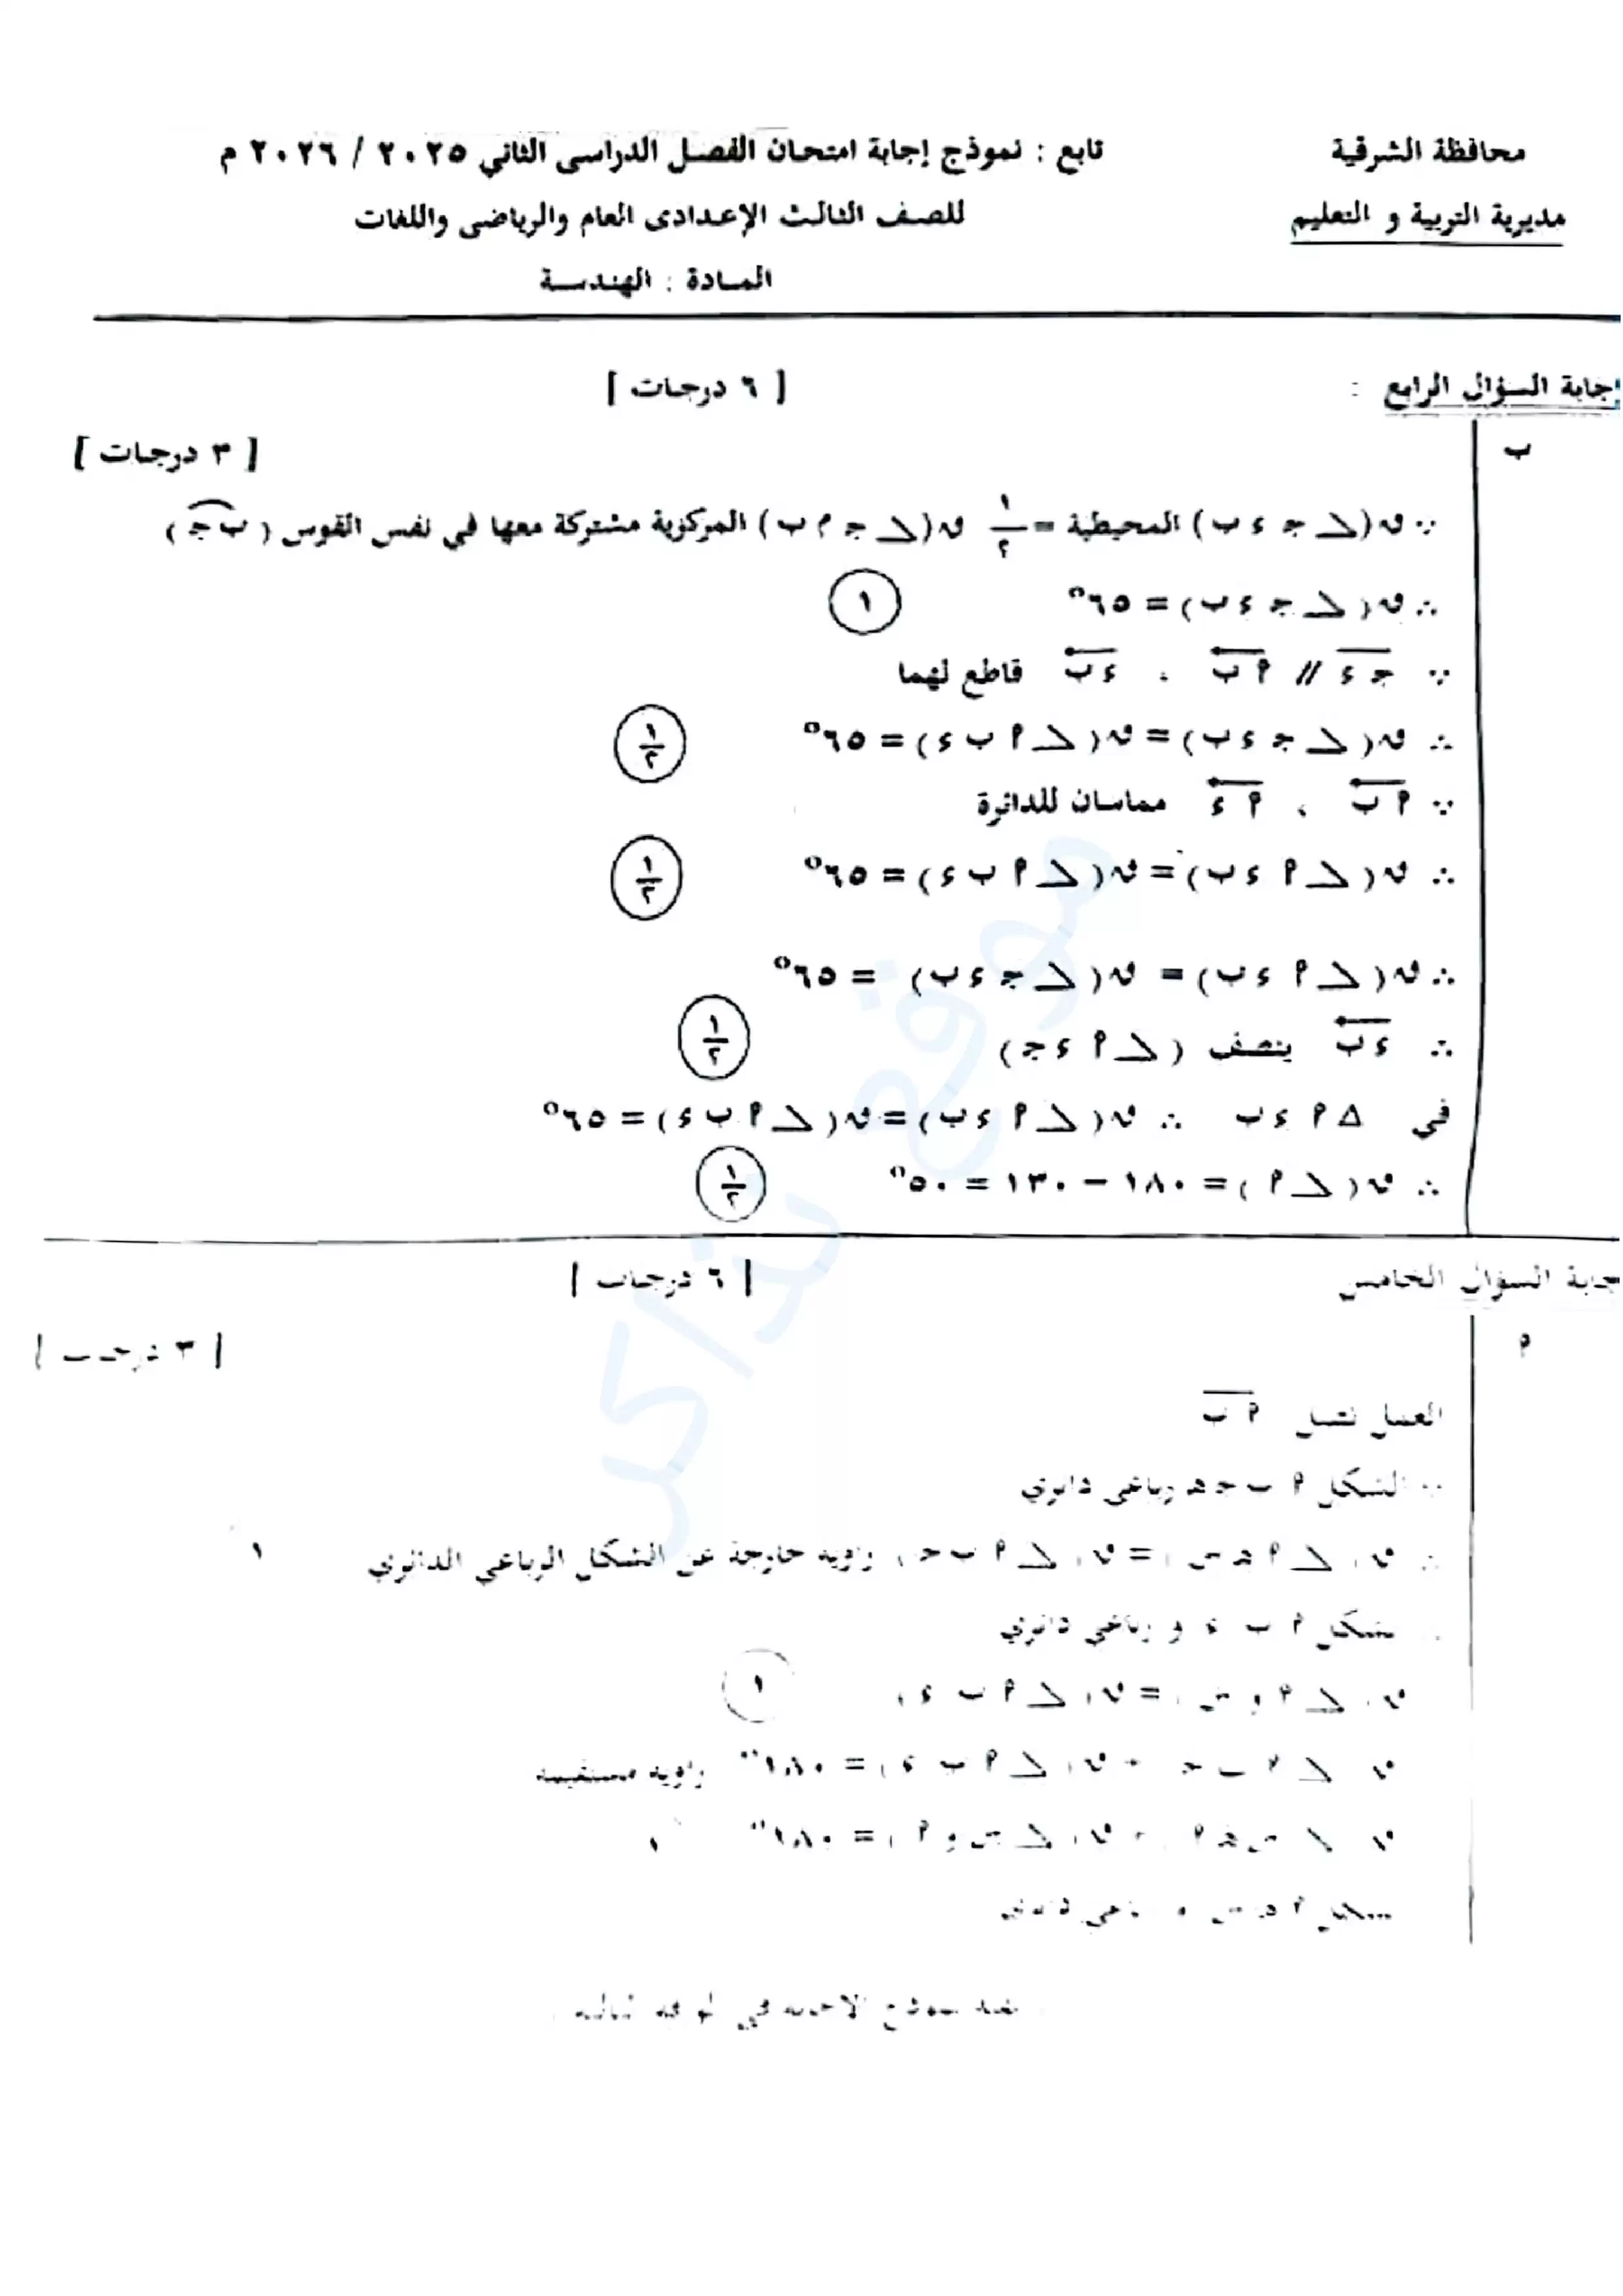 محافظة الشرقية
مديرية التربية و التعليم
تابع : نموذج إجابة امتحان الفصل الدراسى الثاني ٢٠٢٥ / ٢٠٢٦ م
للصف الثالث الإعدادى العام والرياضى واللغات
المادة : الهندسة
إجابة السؤال الرابع : [ ٦ درجات ]
ب [ ٣ درجات ]
∵ ق(∠ جـ ء ب) المحيطية = ١/٢ ق(∠ جـ م ب) المركزية مشتركة معها في نفس القوس (ب جـ)
∴ ق(∠ جـ ء ب) = ٦٥° ١
∵ جـ ء // أ ب ، ء ب قاطع لهما
∴ ق(∠ جـ ء ب) = ق(∠ أ ب ء) = ٦٥° ١/٢
∵ أ ب ، أ ء مماسان للدائرة
∴ ق(∠ أ ء ب) = ق(∠ أ ب ء) = ٦٥° ١/٢
∴ ق(∠ أ ء ب) = ق(∠ جـ ء ب) = ٦٥°
∴ ء ب ينصف (∠ أ ء جـ) ١/٢
في △ أ ء ب ∴ ق(∠ أ ء ب) = ق(∠ أ ب ء) = ٦٥°
∴ ق(∠ أ) = ١٨٠ − ١٣٠ = ٥٠° ١/٢
جابة السؤال الخامس [ ٦ درجات ]
أ [ ٣ درجات ]
العمل نصل أ ب
∵ الشكل أ ب جـ هـ رباعي دائري
∴ ق(∠ أ هـ س) = ق(∠ أ ب جـ) زاوية خارجة عن الشكل الرباعي الدائري ١
شكل أ ب ء و رباعي دائري
ق(∠ أ و س) = ق(∠ أ ب ء) ١
ق(∠ أ ب جـ) + ق(∠ أ ب ء) = ١٨٠° زاوية مستقيمة
ق(∠ س هـ أ) + ق(∠ س و أ) = ١٨٠° ١
موقع نذاكر